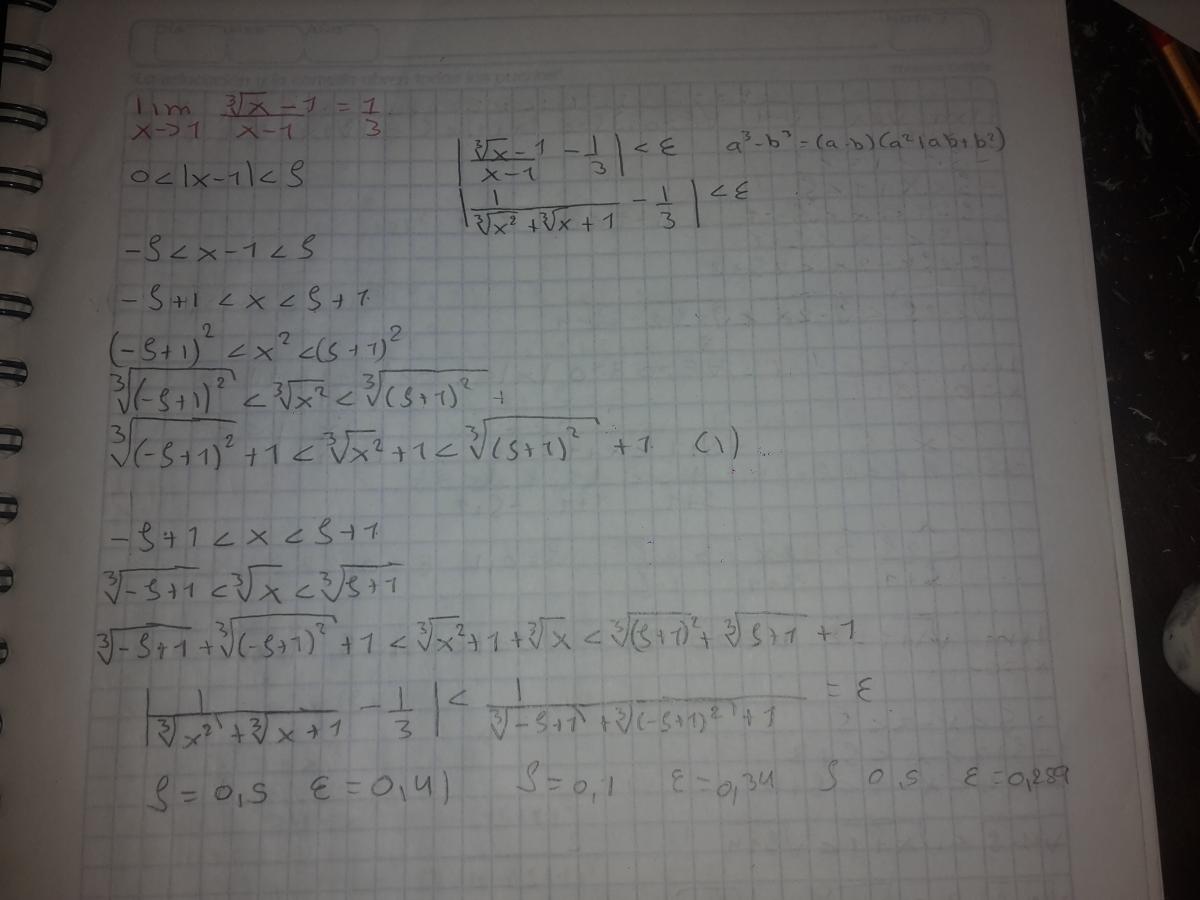 lim x→1 (∛x − 1)/(x − 1) = 1/3
0 < |x−1| < δ
|(∛x − 1)/(x − 1) − 1/3| < ε    a³−b³ = (a-b)(a²+ab+b²)
|1/(∛x² + ∛x + 1) − 1/3| < ε
−δ < x−1 < δ
−δ+1 < x < δ+1
(−δ+1)² < x² < (δ+1)²
∛(−δ+1)² < ∛x² < ∛(δ+1)² +
∛(−δ+1)² + 1 < ∛x² + 1 < ∛(δ+1)² + 1 (1)
−δ+1 < x < δ+1
∛−δ+1 < ∛x < ∛δ+1
∛−δ+1 + ∛(−δ+1)² + 1 < ∛x² + 1 + ∛x < ∛(δ+1)² + ∛δ+1 + 1
|1/(∛x² + ∛x + 1) − 1/3| < 1/(∛−δ+1 + ∛(−δ+1)² + 1) = ε
δ = 0,5 ε = 0,41 δ = 0,1 ε = 0,34 δ 0,5 ε = 0,289